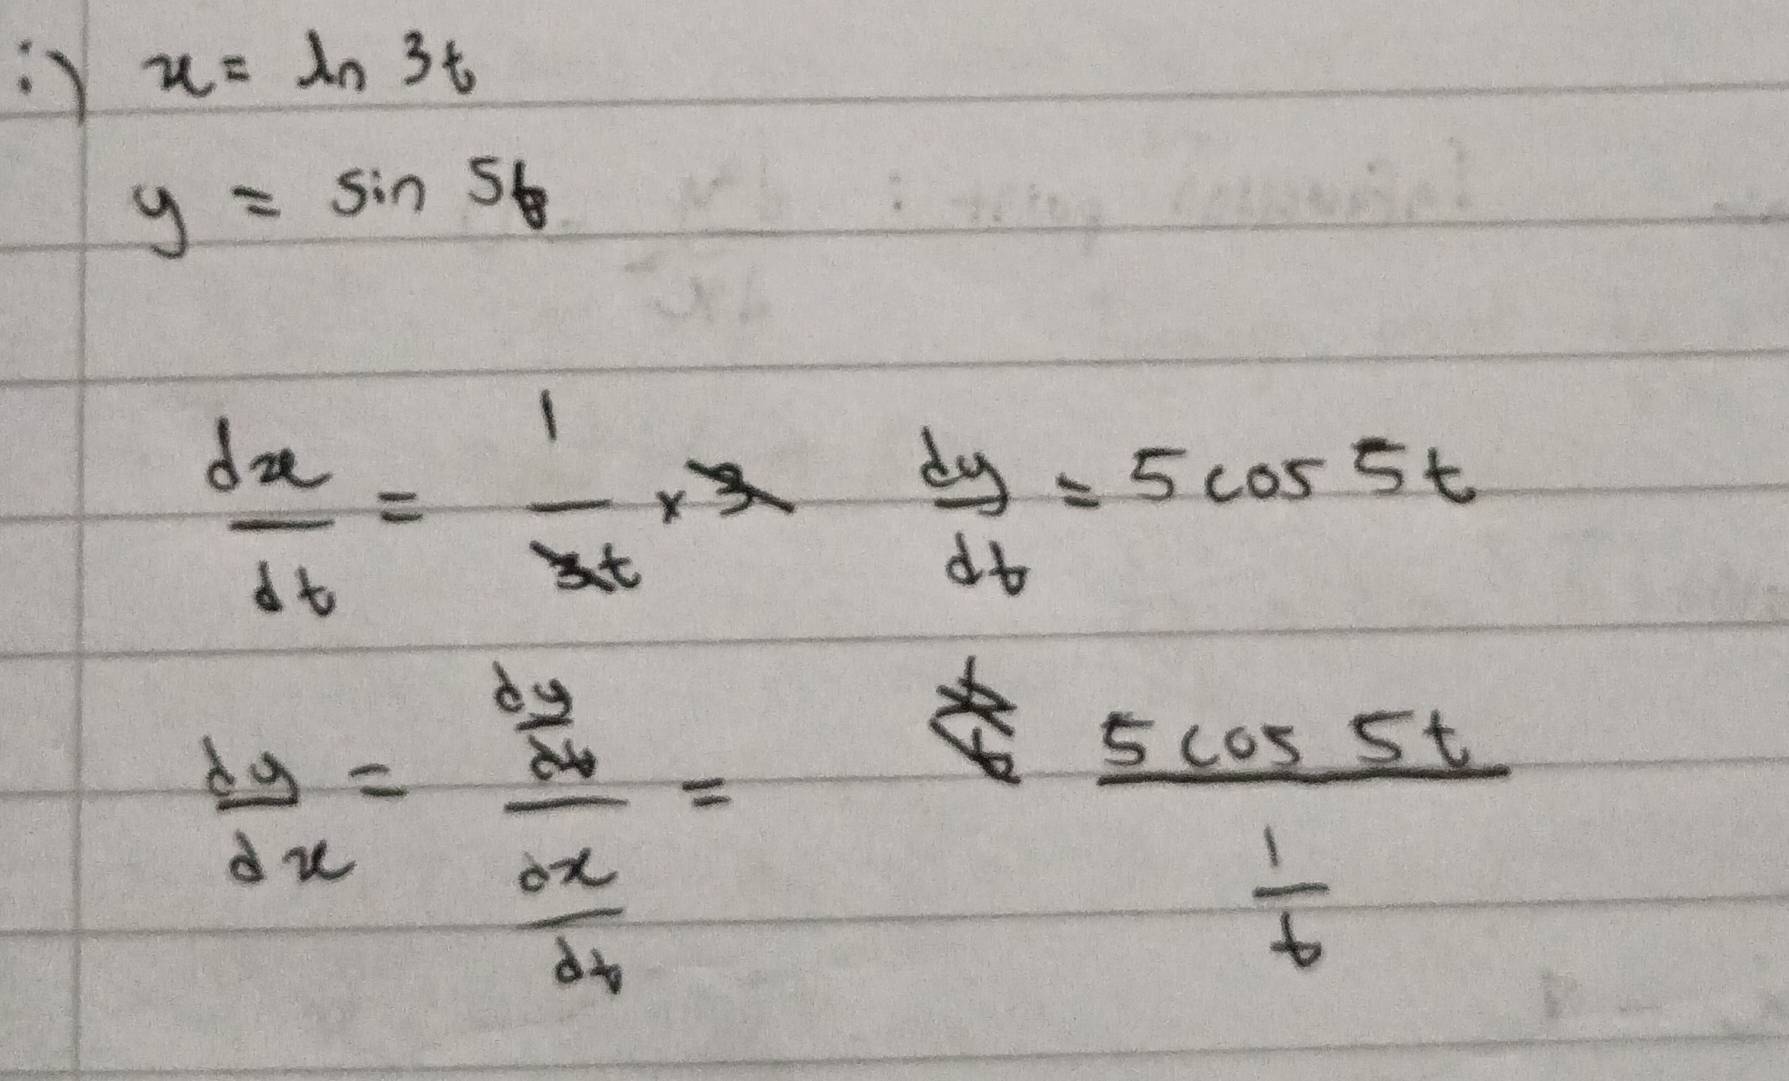 :) x = ln 3t
y = sin 5t
dx/dt = 1/3t × 3 dy/dt = 5 cos 5t
dy/dx = (dy/dt)/(dx/dt) = (5 cos 5t)/(1/t)